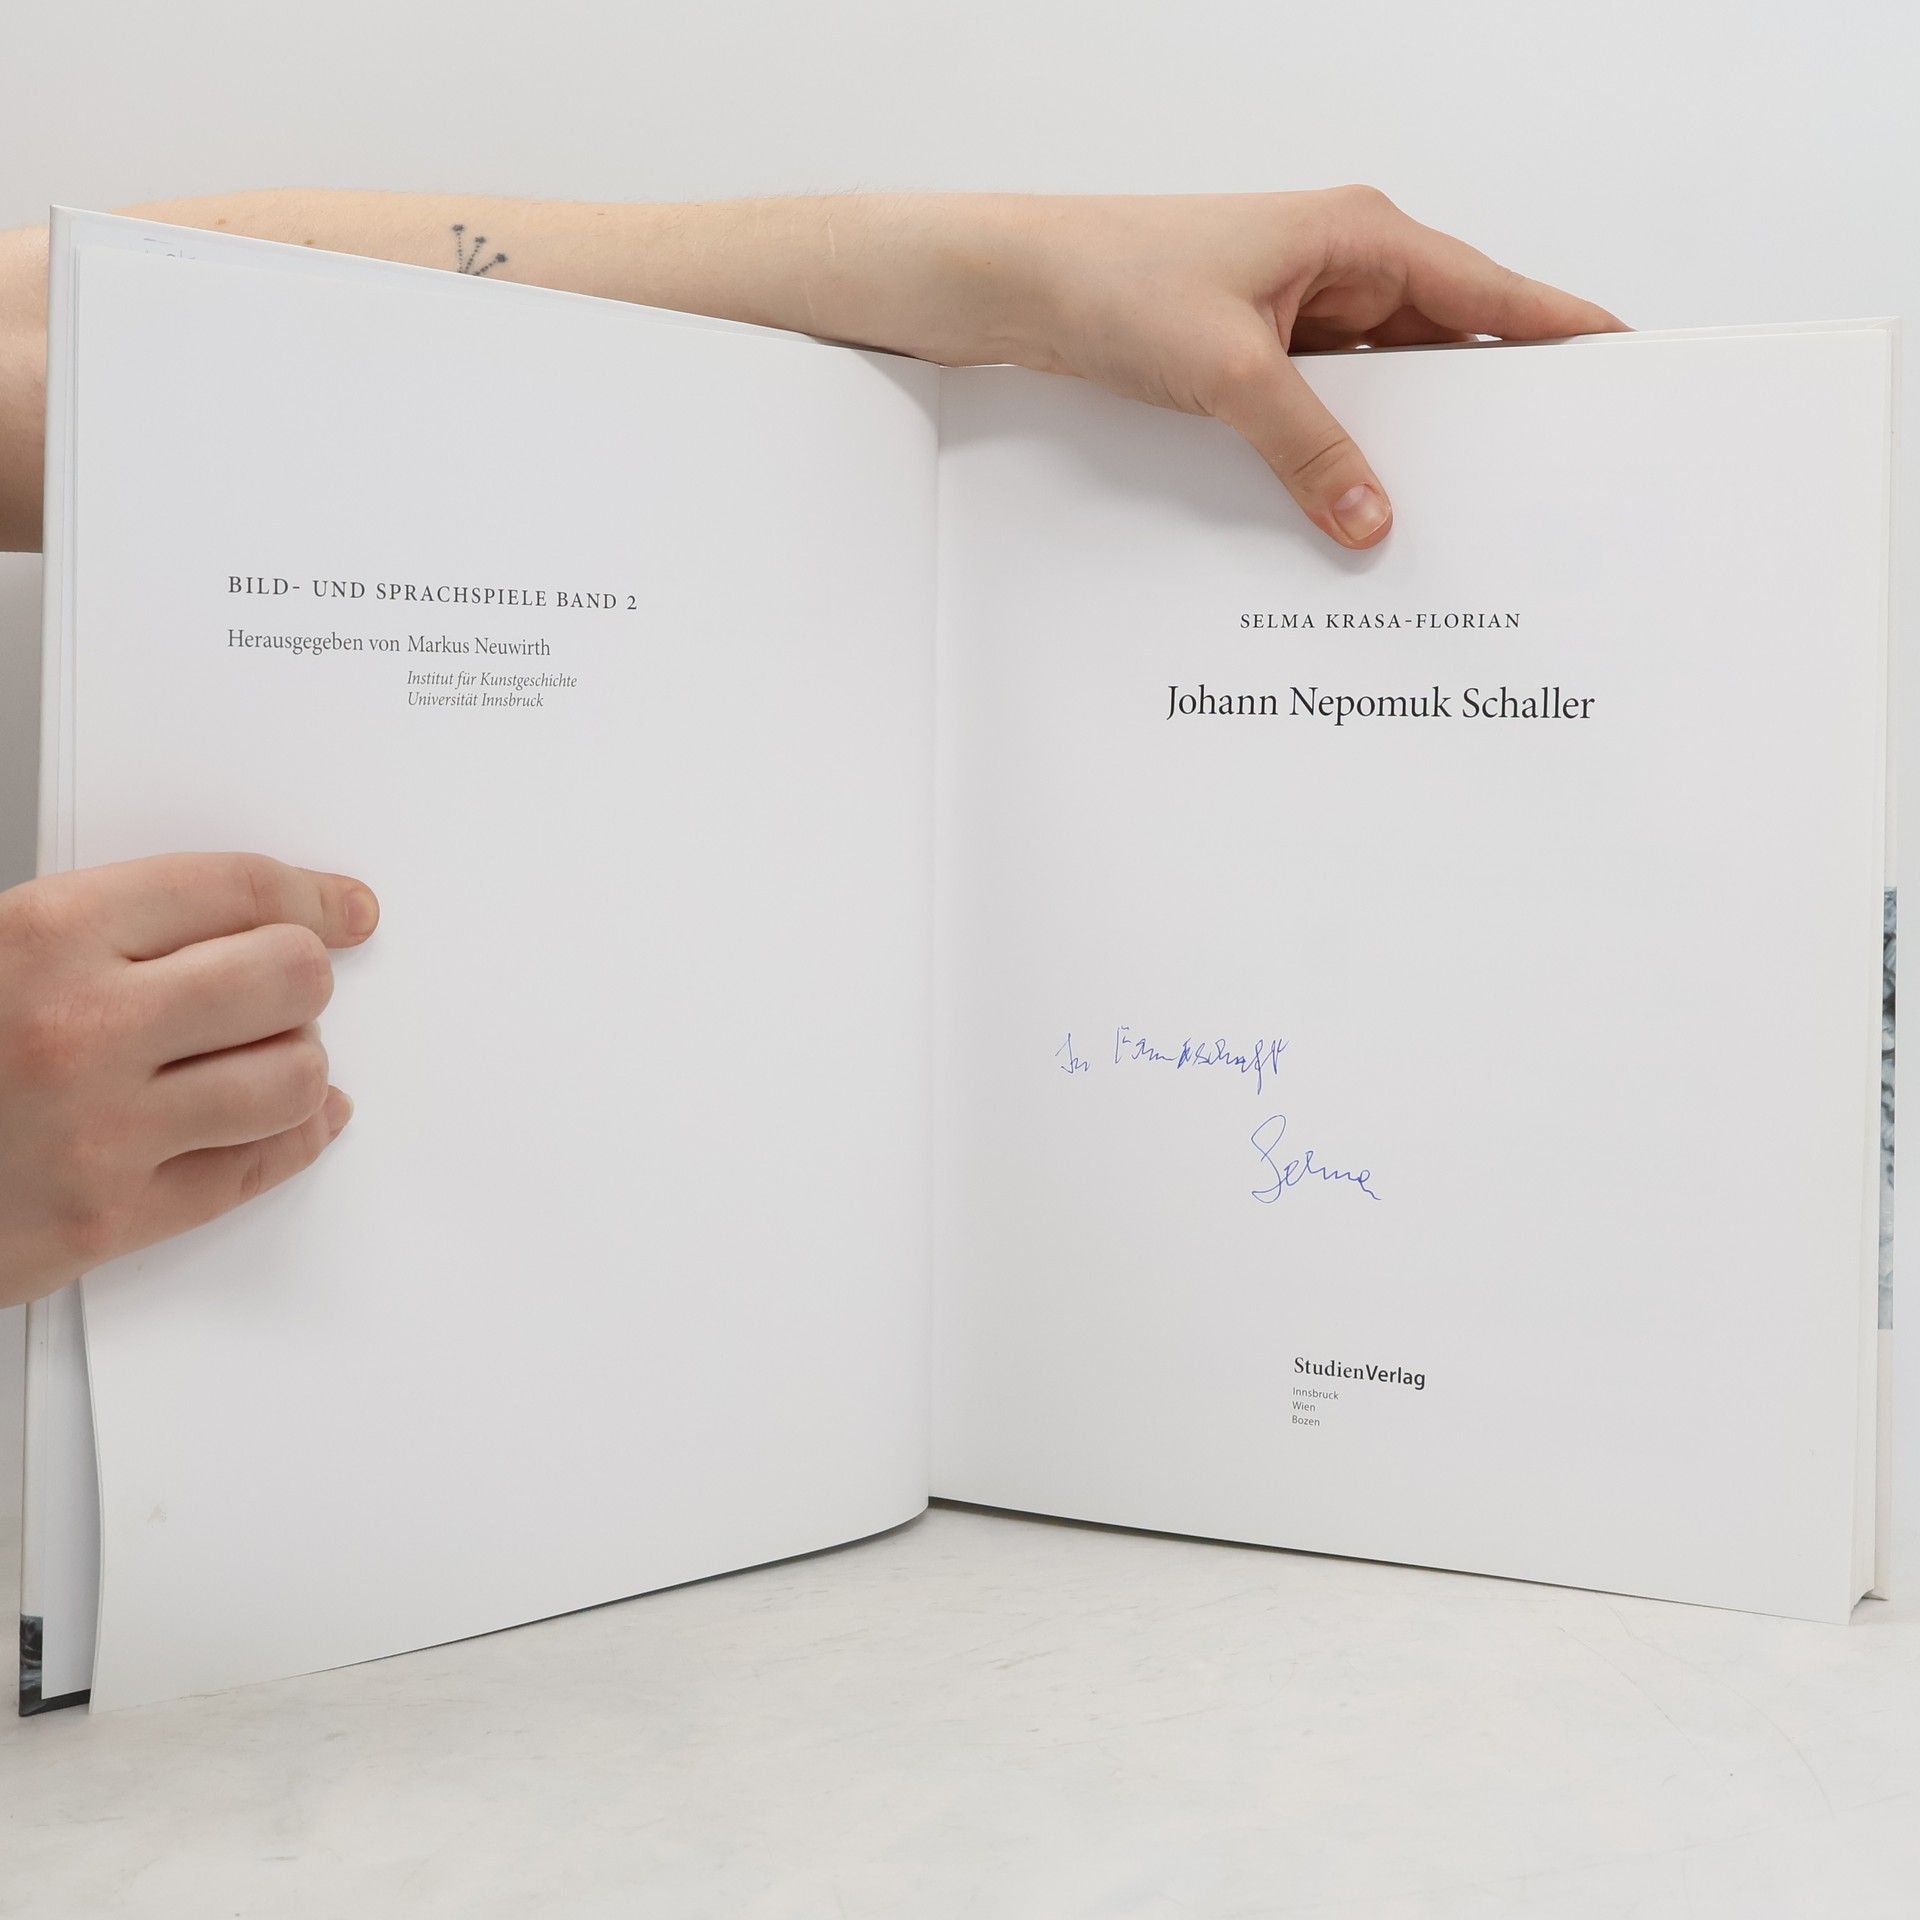 BILD- UND SPRACHSPIELE BAND 2
Herausgegeben von Markus Neuwirth
Institut für Kunstgeschichte
Universität Innsbruck
SELMA KRASA-FLORIAN
Johann Nepomuk Schaller
In Freundschaft
Selma
StudienVerlag
Innsbruck
Wien
Bozen